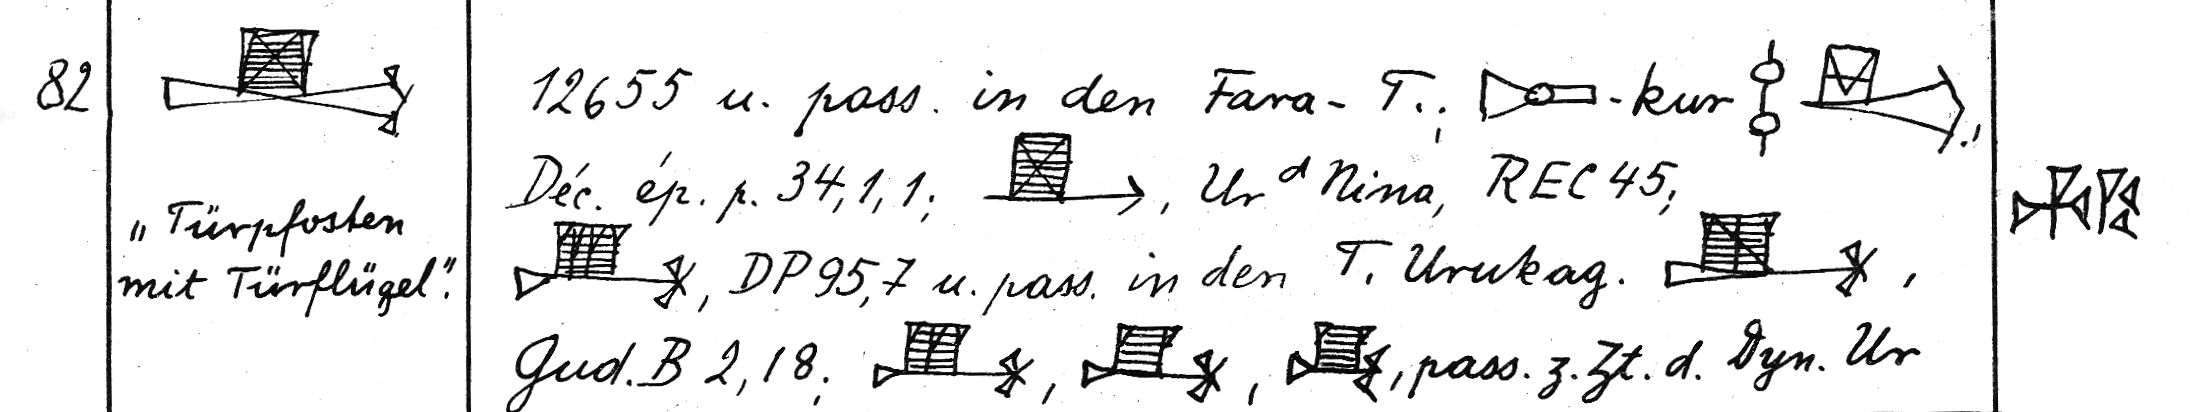 82
„Türpfosten
mit Türflügel“.
12655 u. pass. in den Fara-T.; -kur
Déc. ép. p. 34,1,1; , Ur ᵈNina, REC 45;
, DP 95,7 u. pass. in den T. Urukag. ,
Gud. B 2,18; , , , pass. z. Zt. d. Dyn. Ur